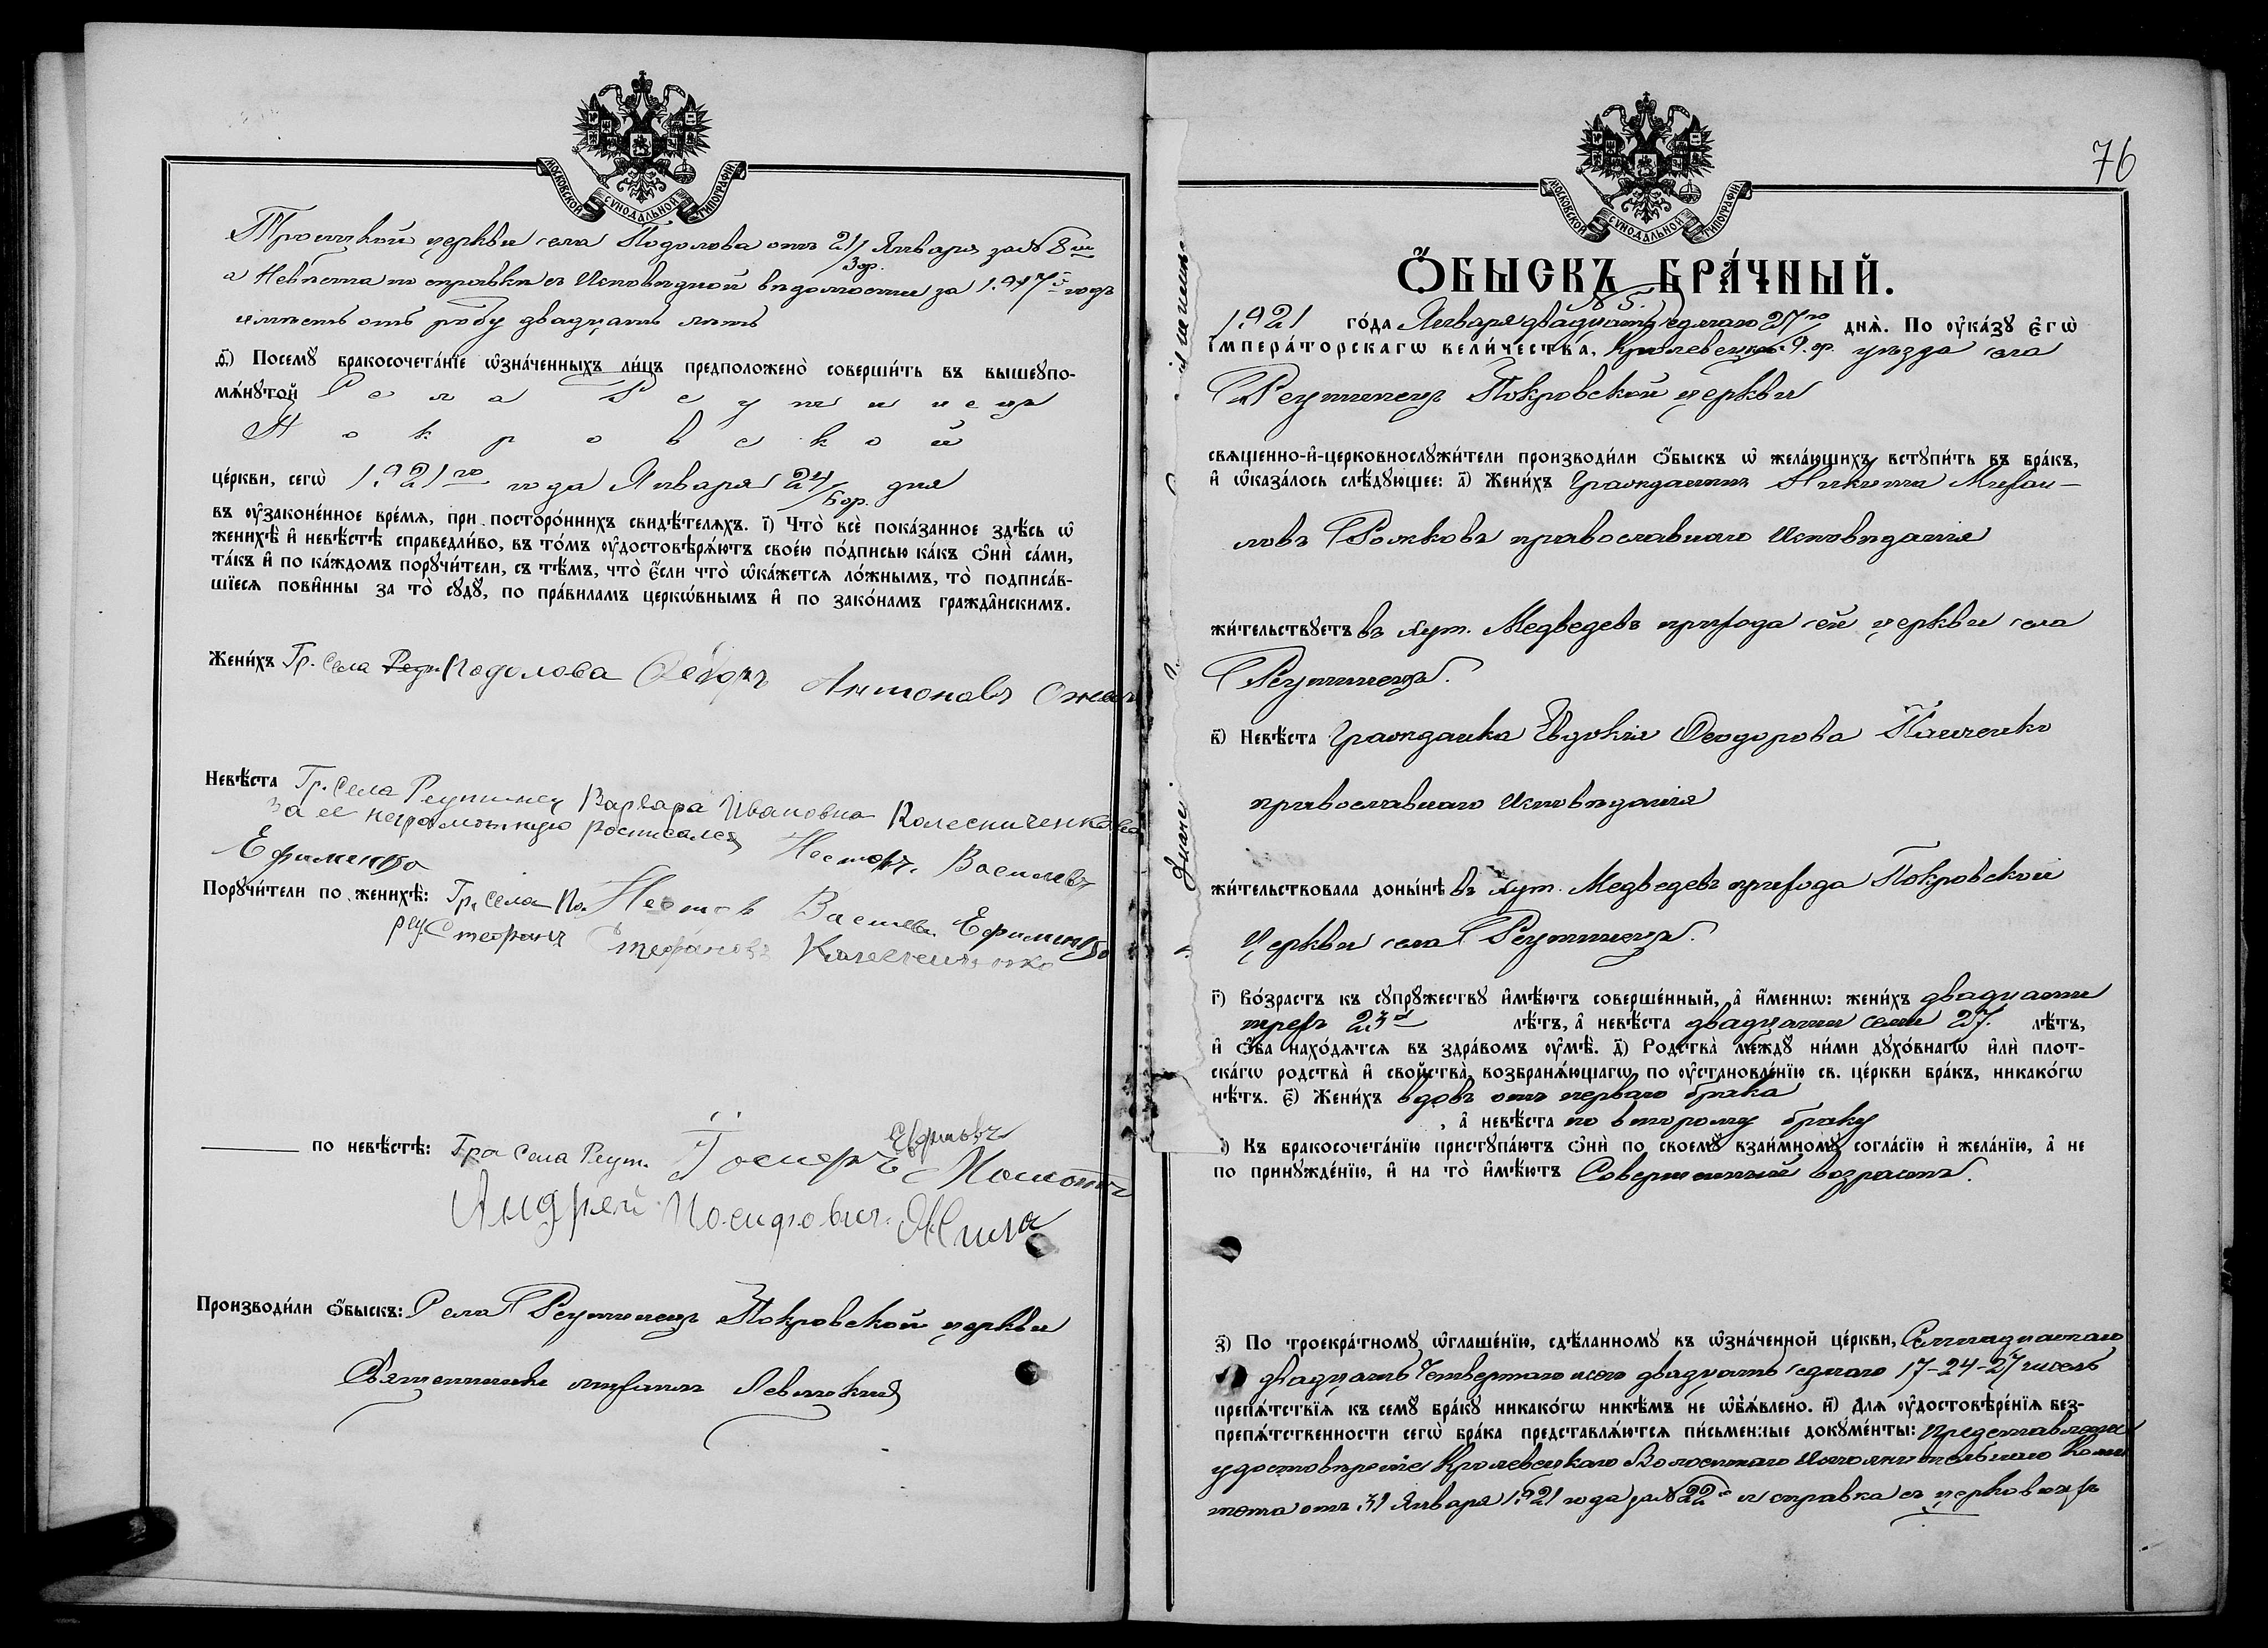 МОСКОВСКОЙ СУНОДАЛЬНОЙ ТИПОГРАФІИ
Троицкой церкви села Подолова отъ 21/3 ф. Января за № 8
а Невѣста по справкѣ съ Исповѣдной вѣдомости за 1917 годъ
имѣетъ отъ роду двадцать лѣтъ
д҃і) Посемꙋ̀ бракосочета́нїе ѡ҆зна́ченныхъ ли́цъ предположено̀ соверши́ть въ вышеꙋпо-
мѧ́нꙋтой Села Реутинецъ
Покровской
це́ркви, сегѡ̀ 1921го года Января 24/6 ф. дня
въ ᲂу҆законе́нное вре́мѧ, при посторо́ннихъ свидѣ́телѧхъ. і҃) Что̀ всѐ пока́занное здѣ́сь ѡ҆
женихѣ̀ и҆ невѣ́стѣ справедли́во, въ то́мъ ᲂу҆достовѣрѧ́ютъ свое́ю по́дписью ка́къ ѻ҆нѝ са́ми,
та́къ и҆ по ка́ждомъ порꙋчи́тели, съ тѣ́мъ, что̀ є҆́сли что̀ ѡ҆ка́жетсѧ ло́жнымъ, то̀ подписа́в-
шїесѧ пови́нны за то̀ сꙋдꙋ̀, по пра́виламъ церкѡ́внымъ и҆ по зако́намъ гражда́нскимъ.
Жени́хъ Гр. Села Подолова Антоновъ
Невѣ́ста Гр. Села Реутинец Варвара Ивановна Колесниченкова
за ее неграмотную росписался Несторъ Васильевъ
Ефименко
Порꙋчи́тели по женихѣ̀: Гр. Села По. Нестор Василев. Ефименко
реу. Стефанъ Стефановъ Колесниченко
по невѣ́стѣ: Гра Села Реут.
Андрей Иосифовичъ Жила
Производи́ли ѻ҆́быскъ: Села Реутинецъ Покровской церкви
Священникъ Левицкій
76
МОСКОВСКОЙ СУНОДАЛЬНОЙ ТИПОГРАФІИ
Ѻ҆́БЫСКЪ БРА́ЧНЫЙ.
№ 5.
1921 го́да Января двадцать седьмаго 27го днѧ̀. По ᲂу҆ка́зꙋ є҆гѡ̀
і҆мпера́торскагѡ вели́чества, Кролевецкаго 9. ф. уѣзда села
Реутинецъ Покровской церкви
свѧще́нно-и҆-церковнослꙋжи́тели производи́ли ѻ҆́быскъ ѡ҆ жела́ющихъ встꙋпи́ть въ бра́къ,
и҆ ѡ҆каза́лось слѣ́дꙋющее: а҃) Жени́хъ Гражданинъ Никита Михаи-
ловъ Рожковъ православнаго Исповѣданія
жи́тельствꙋетъ въ хут. Медведевъ прихода сей церкви села
Реутинецъ.
в҃) Невѣ́ста Гражданка Евдокія Феодорова Пащенко
православнаго Исповѣданія
жи́тельствовала доны́нѣ въ хут. Медведевъ прихода Покровской
Церкви села Реутинецъ.
г҃) Во́зрастъ къ сꙋпрꙋ́жествꙋ и҆мѣ́ютъ соверше́нный, а҆ и҆́меннѡ: жени́хъ двадцати
трехъ 23х лѣ́тъ, а҆ невѣ́ста двадцати семи 27. лѣ́тъ,
и҆ ѻ҆́ба нахо́дѧтсѧ въ здра́вомъ ᲂу҆мѣ̀. д҃) Родства̀ междꙋ̀ ни́ми дꙋхо́внагѡ и҆лѝ плот-
ска́гѡ родства̀ и҆ сво́йства, возбранѧ́ющагѡ по ᲂу҆становле́нїю св. це́ркви бра́къ, никако́гѡ
нѣ́тъ. є҃) Жени́хъ вдовъ отъ перваго брака
, а҆ невѣ́ста по второму браку
) Къ бракосочета́нїю пристꙋпа́ютъ ѻ҆нѝ по своемꙋ̀ взаи́мномꙋ согла́сїю и҆ жела́нїю, а҆ не
по принꙋжде́нїю, и҆ на то̀ и҆мѣ́ютъ Совершенный возрастъ.
з҃) По троекра́тномꙋ ѡ҆глаше́нїю, сдѣ́ланномꙋ въ ѡ҆зна́ченной це́ркви, Семнадцатаго
двадцать четвертаго двадцать седмаго 17-24-27 чиселъ
препѧ́тствїѧ къ семꙋ̀ бра́кꙋ никако́гѡ никѣ́мъ не ѡ҆б̾ѧ́влено. и҃) Длѧ ᲂу҆достовѣре́нїѧ без-
препѧ́тственности сегѡ̀ бра́ка представлѧ́ютсѧ пи́сьменные докꙋме́нты: Представлено
удостовѣреніе Кролевецкаго Волостнаго Исполнительнаго Коми
тета отъ 31 Января 1921 года за № 22 и справка съ церковныхъ